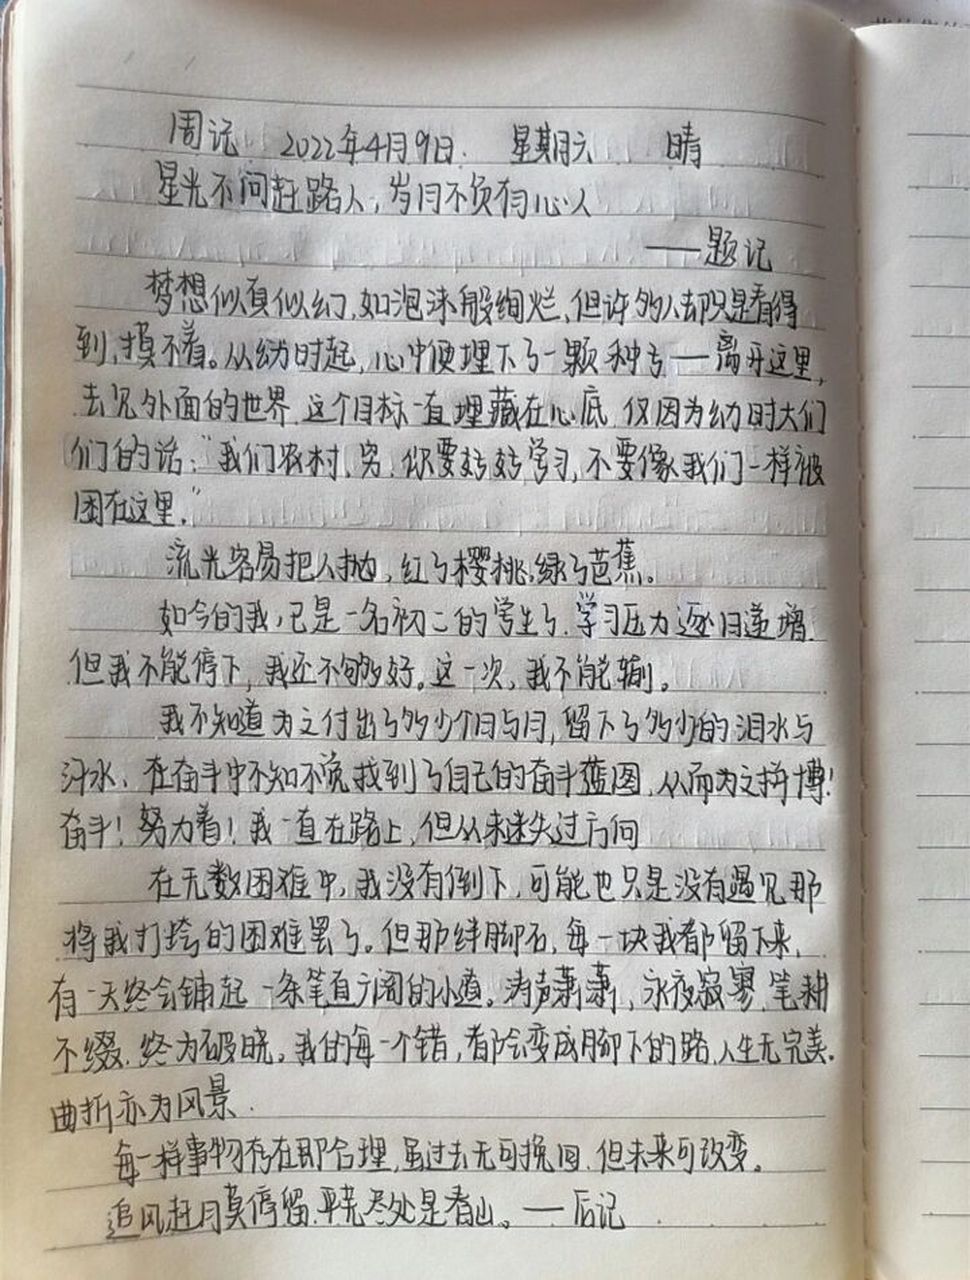 周记 2022年4月9日. 星期六 晴
星光不问赶路人,岁月不负有心人
——题记
梦想似真似幻,如泡沫般绚烂,但许多人却只是看得
到,摸不着。从幼时起,心中便埋下了一颗种子——离开这里,
去见外面的世界.这个目标一直埋藏在心底,仅因为幼时大人们
们的话:"我们农村,穷.你要好好学习,不要像我们一样被
困在这里."
流光容易把人抛,红了樱桃,绿了芭蕉。
如今的我,已是一名初二的学生了.学习压力逐日递增.
但我不能停下,我还不够好。这一次,我不能输。
我不知道为之付出了多少个日与月,留下了多少的泪水与
汗水、在奋斗中不知不觉找到了自己的奋斗蓝图,从而为之拼搏!
奋斗!努力着!我一直在路上,但从未迷失过方向
在无数困难中,我没有倒下,可能也只是没有遇见那
将我打垮的困难罢了。但那绊脚石,每一块我都留下来,
有一天终会铺起一条笔直宽阔的小道。涛声萧萧,永夜寂寥,笔耕
不缀.终为破晓。我的每一个错,都会变成脚下的路.人生无完美.
曲折亦为风景.
每一样事物存在即合理,虽过去无可挽回.但未来可改变。
追风赶月莫停留.平芜尽处是春山。——后记